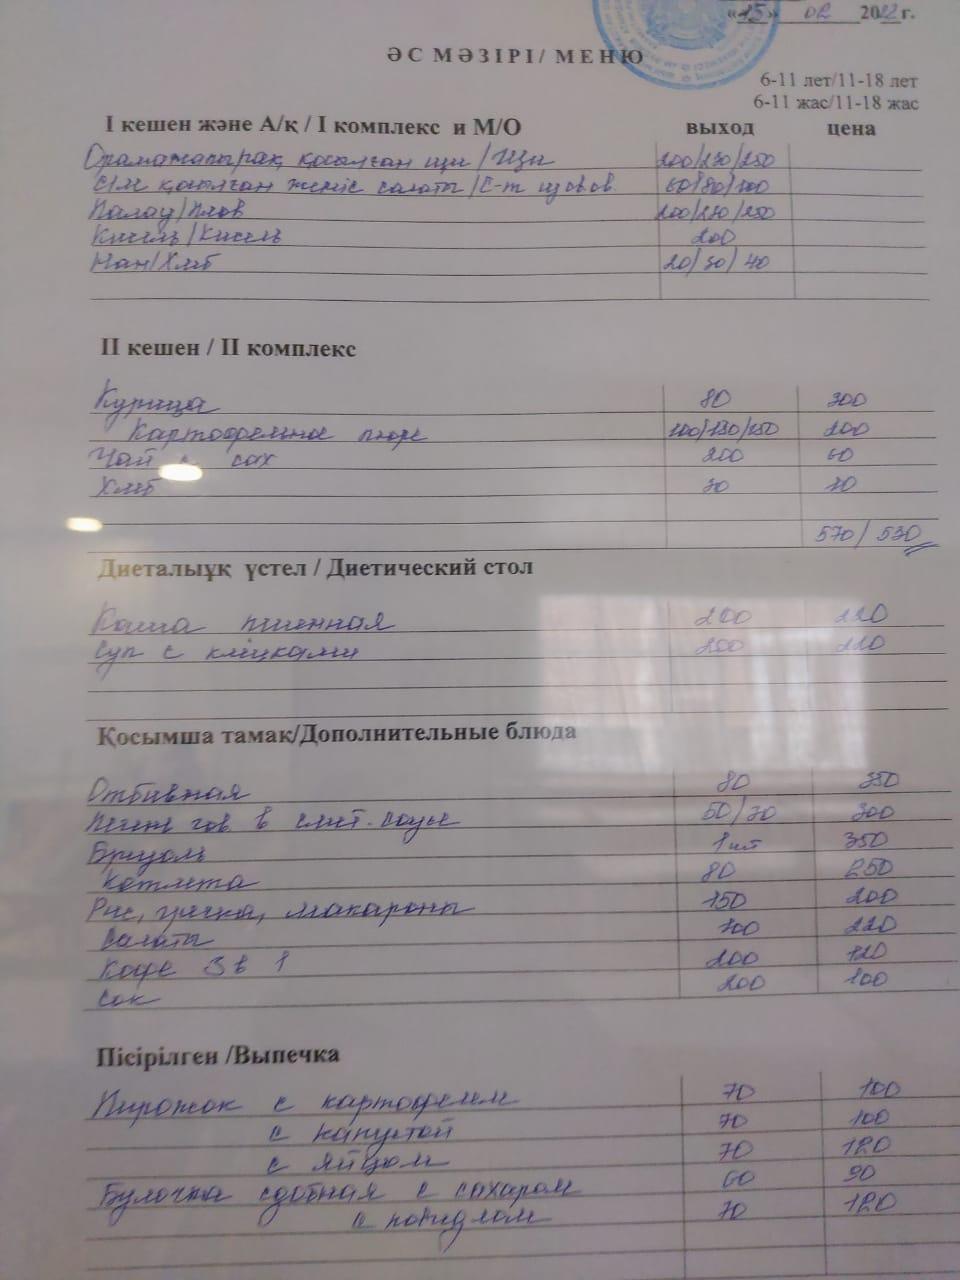 «15» 02 2022 г.
ӘС МӘЗІРІ / МЕНЮ
6-11 лет/11-18 лет
6-11 жас/11-18 жас
І кешен және А/қ / І комплекс и М/О выход цена
Орамжапырақ қосылған щи / Щи 200/230/250
С/м қосылған жеміс салаты / С-т из ов 60/80/100
Палау/Плов 200/230/250
Кисель/Кисель 200
Нан/Хлеб 20/30/40
ІІ кешен / ІІ комплекс
Курица 80 300
Картофельное пюре 100/130/150 200
Чай с сах 200 60
Хлеб 30 10
570/530
Диеталыұқ үстел / Диетический стол
Каша пшенная 200 220
Суп с клецками 200 220
Қосымша тамақ/Дополнительные блюда
Отбивная 80 350
Печень гов в смет. соусе 50/30 300
Бризоль 1 шт 350
Котлета 80 250
Рис, гречка, макароны 150 200
Салаты 100 220
Кофе 3 в 1 200 120
Сок 200 100
Пісірілген /Выпечка
Пирожок с картофелем 70 100
с капустой 70 100
с яйцом 70 120
Булочка сдобная с сахаром 60 90
с повидлом 70 120